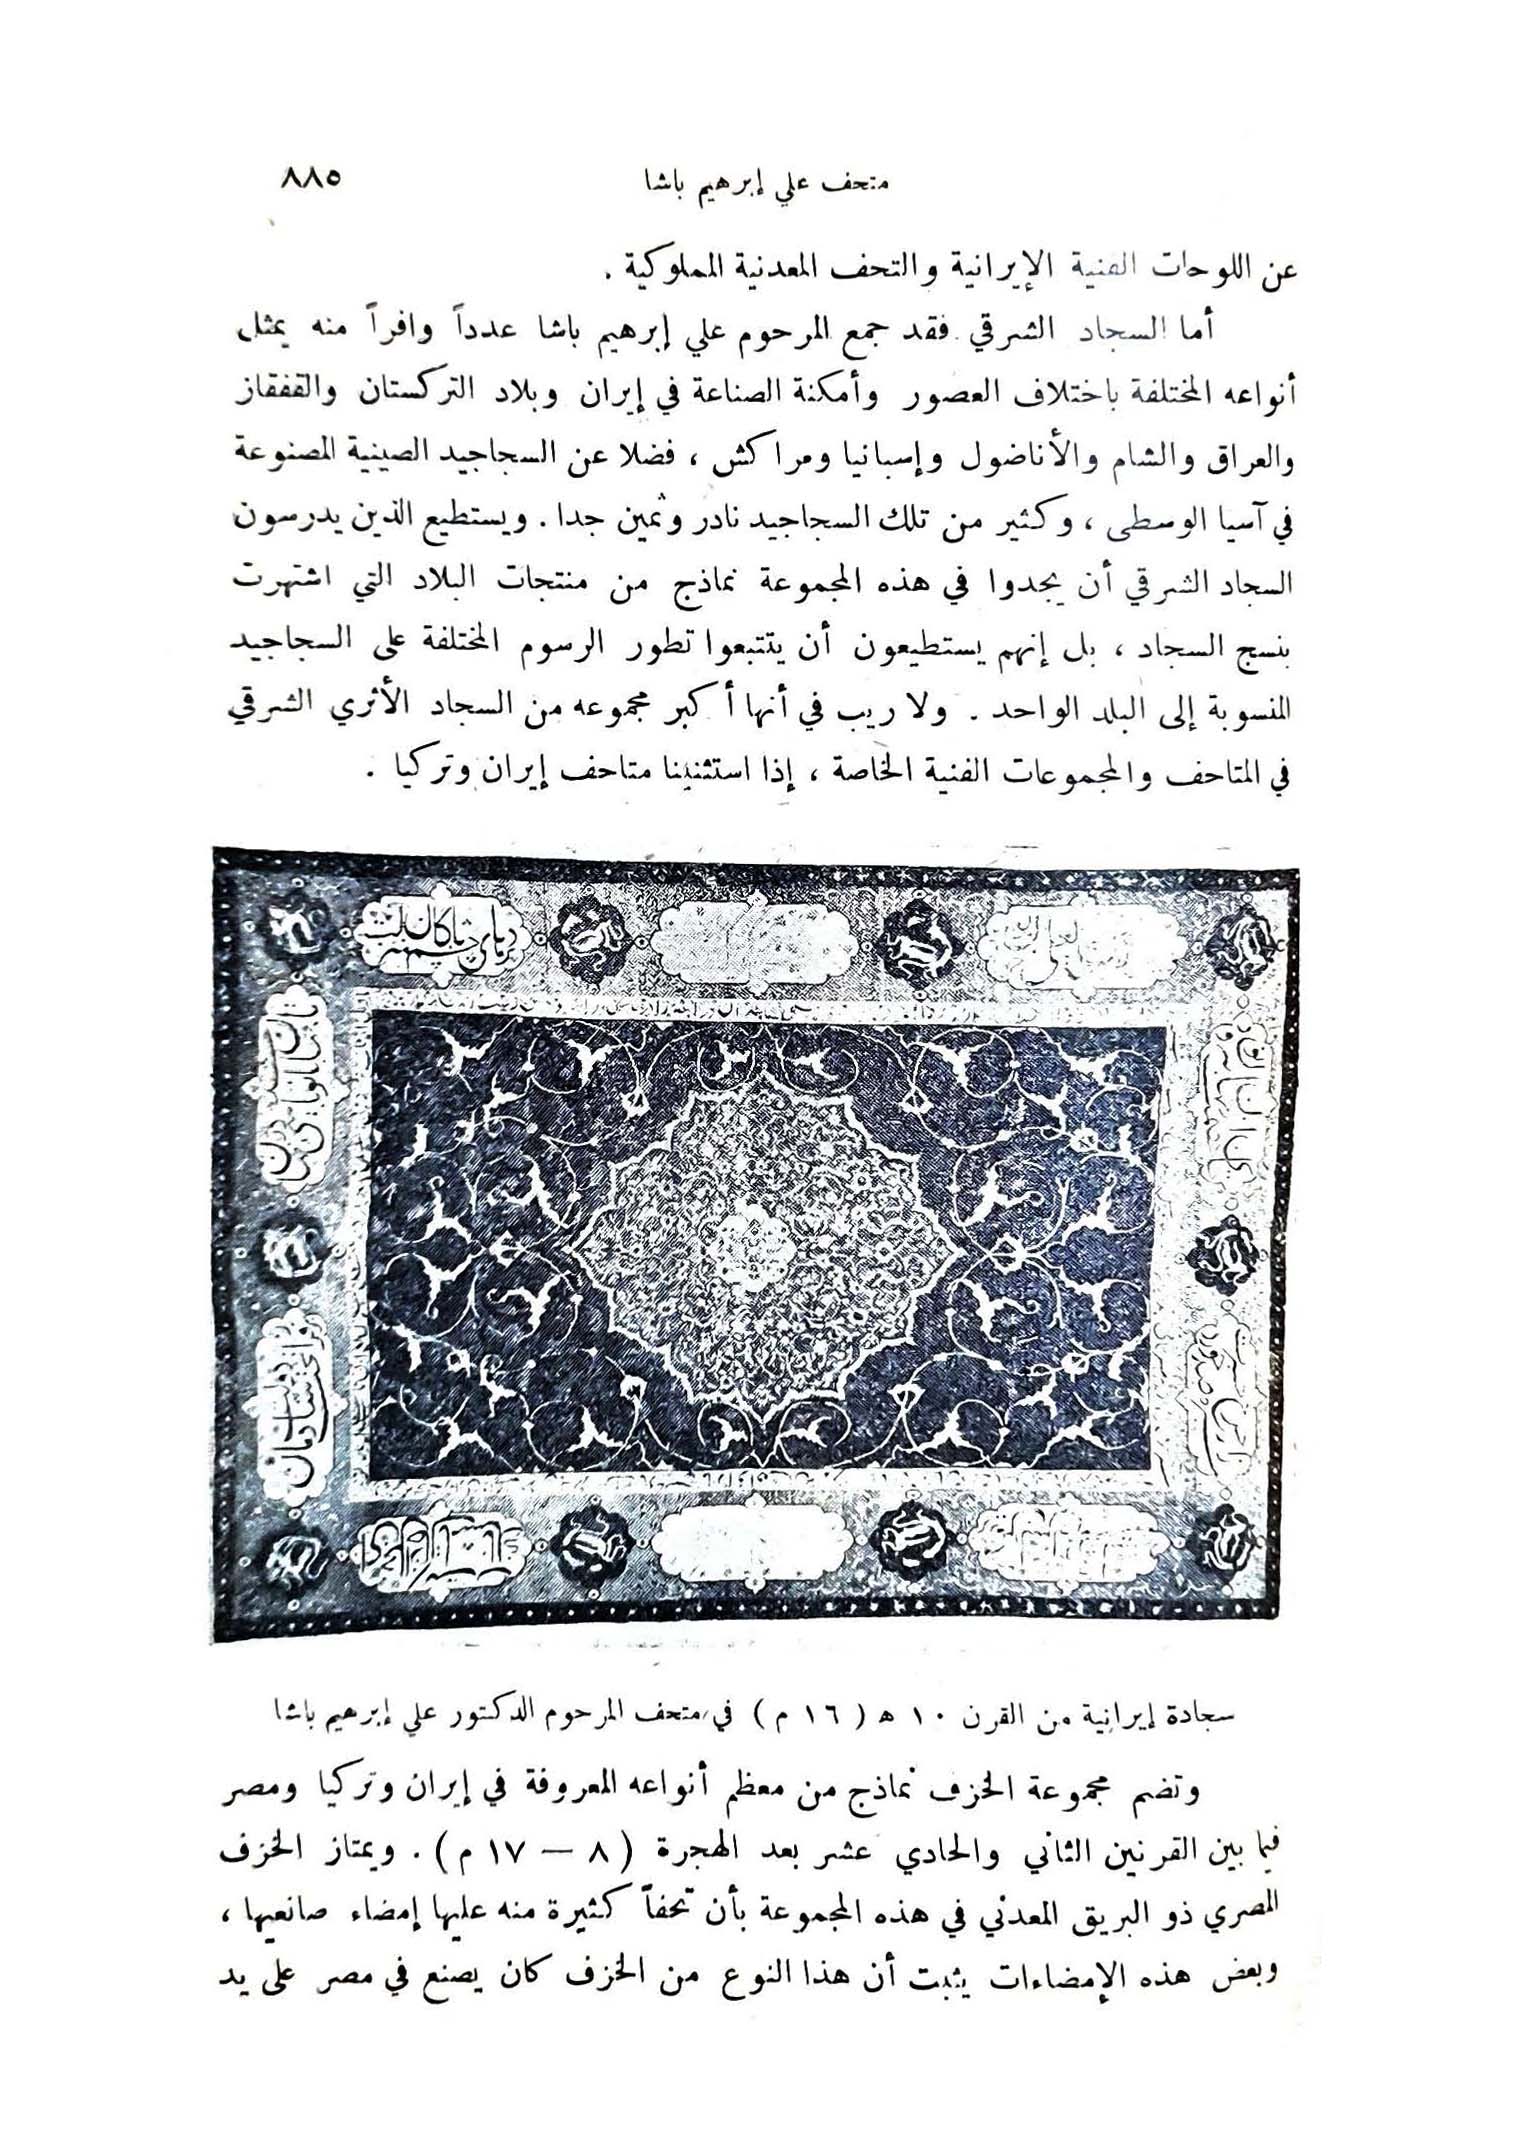 متحف علي إبرهيم باشا ٨٨٥
عن اللوحات الفنية الإيرانية والتحف المعدنية المملوكية .
أما السجاد الشرقي فقد جمع المرحوم علي إبرهيم باشا عدداً وافراً منه يمثل
أنواعه المختلفة باختلاف العصور وأمكنة الصناعة في إيران وبلاد التركستان والقفقاز
والعراق والشام والأناضول وإسبانيا ومراكش ، فضلا عن السجاجيد الصينية المصنوعة
في آسيا الوسطى ، وكثير من تلك السجاجيد نادر وثمين جدا . ويستطيع الذين يدرسون
السجاد الشرقي أن يجدوا في هذه المجموعة نماذج من منتجات البلاد التي اشتهرت
بنسج السجاد ، بل إنهم يستطيعون أن يتتبعوا تطور الرسوم المختلفة على السجاجيد
المنسوبة إلى البلد الواحد . ولا ريب في أنها أكبر مجموعه من السجاد الأثري الشرقي
في المتاحف والمجموعات الفنية الخاصة ، إذا استثنينا متاحف إيران وتركيا .
سجادة إيرانية من القرن ١٠ ه ( ١٦ م ) في متحف المرحوم الدكتور علي إبرهيم باشا
وتضم مجموعة الخزف نماذج من معظم أنواعه المعروفة في إيران وتركيا ومصر
فيما بين القرنين الثاني والحادي عشر بعد الهجرة ( ٨ — ١٧ م ) . ويمتاز الخزف
المصري ذو البريق المعدني في هذه المجموعة بأن تحفاً كثيرة منه عليها إمضاء صانعيها ،
وبعض هذه الإمضاءات يثبت أن هذا النوع من الخزف كان يصنع في مصر على يد